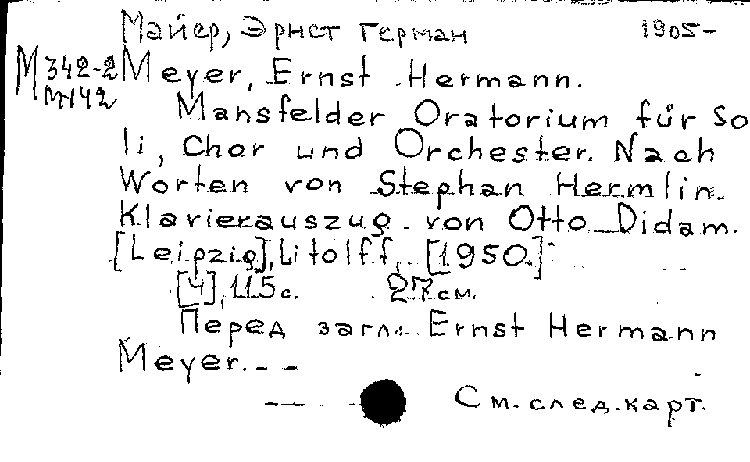 Майер, Эрнст Герман 1905-
М 342-2 Meyer, Ernst Hermann.
м142
Mansfelder Oratorium für So
li, Chor und Orchester. Nach
Worten von Stephan Hermlin.
Klavierauszug von Otto Didam.
[Leipzig], Litolff, [1950.]
[4], 115 с. 27 см.
Перед загл.: Ernst Hermann
Meyer.
См. след. карт.